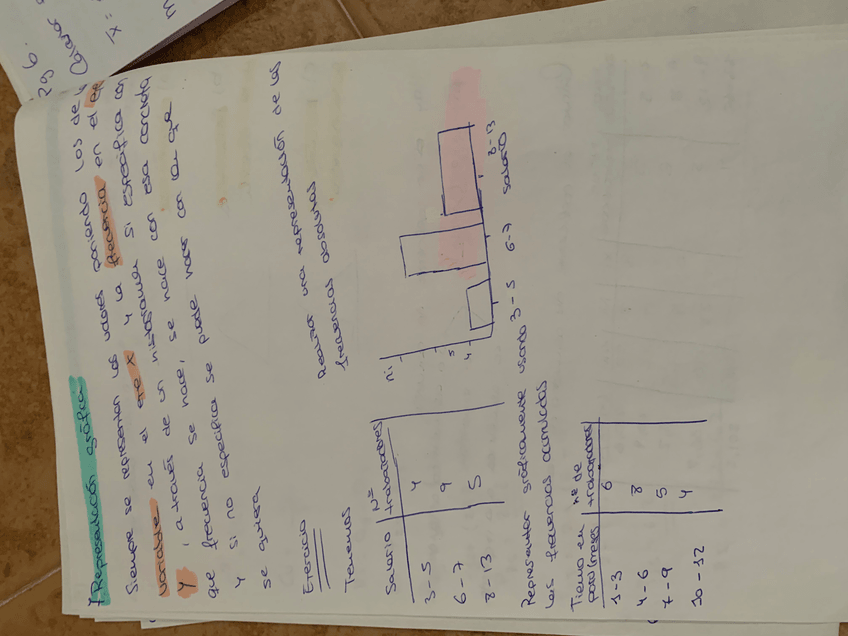 29 6.
Representación gráfica:
Siempre se representan los valores poniendo los de la
variable en el eje x y la frecuencia en el eje
Y, a través de un histograma si especifica con
que frecuencia se hace, se hace con esa concreta
y si no especifica se puede hacer con la que
se quiera
Ejercicio
Tenemos
Realizar una representación de las
frecuencias absolutas
Salario Nº trabajadores
3-5 4
6-7 9
8-13 5
ni
5
4
3-5 6-7 8-13
salario
Representar gráficamente usando
las frecuencias acumuladas
Tiempo en paro/meses nº de trabajadores
1-3 6
4-6 8
7-9 5
10-12 4